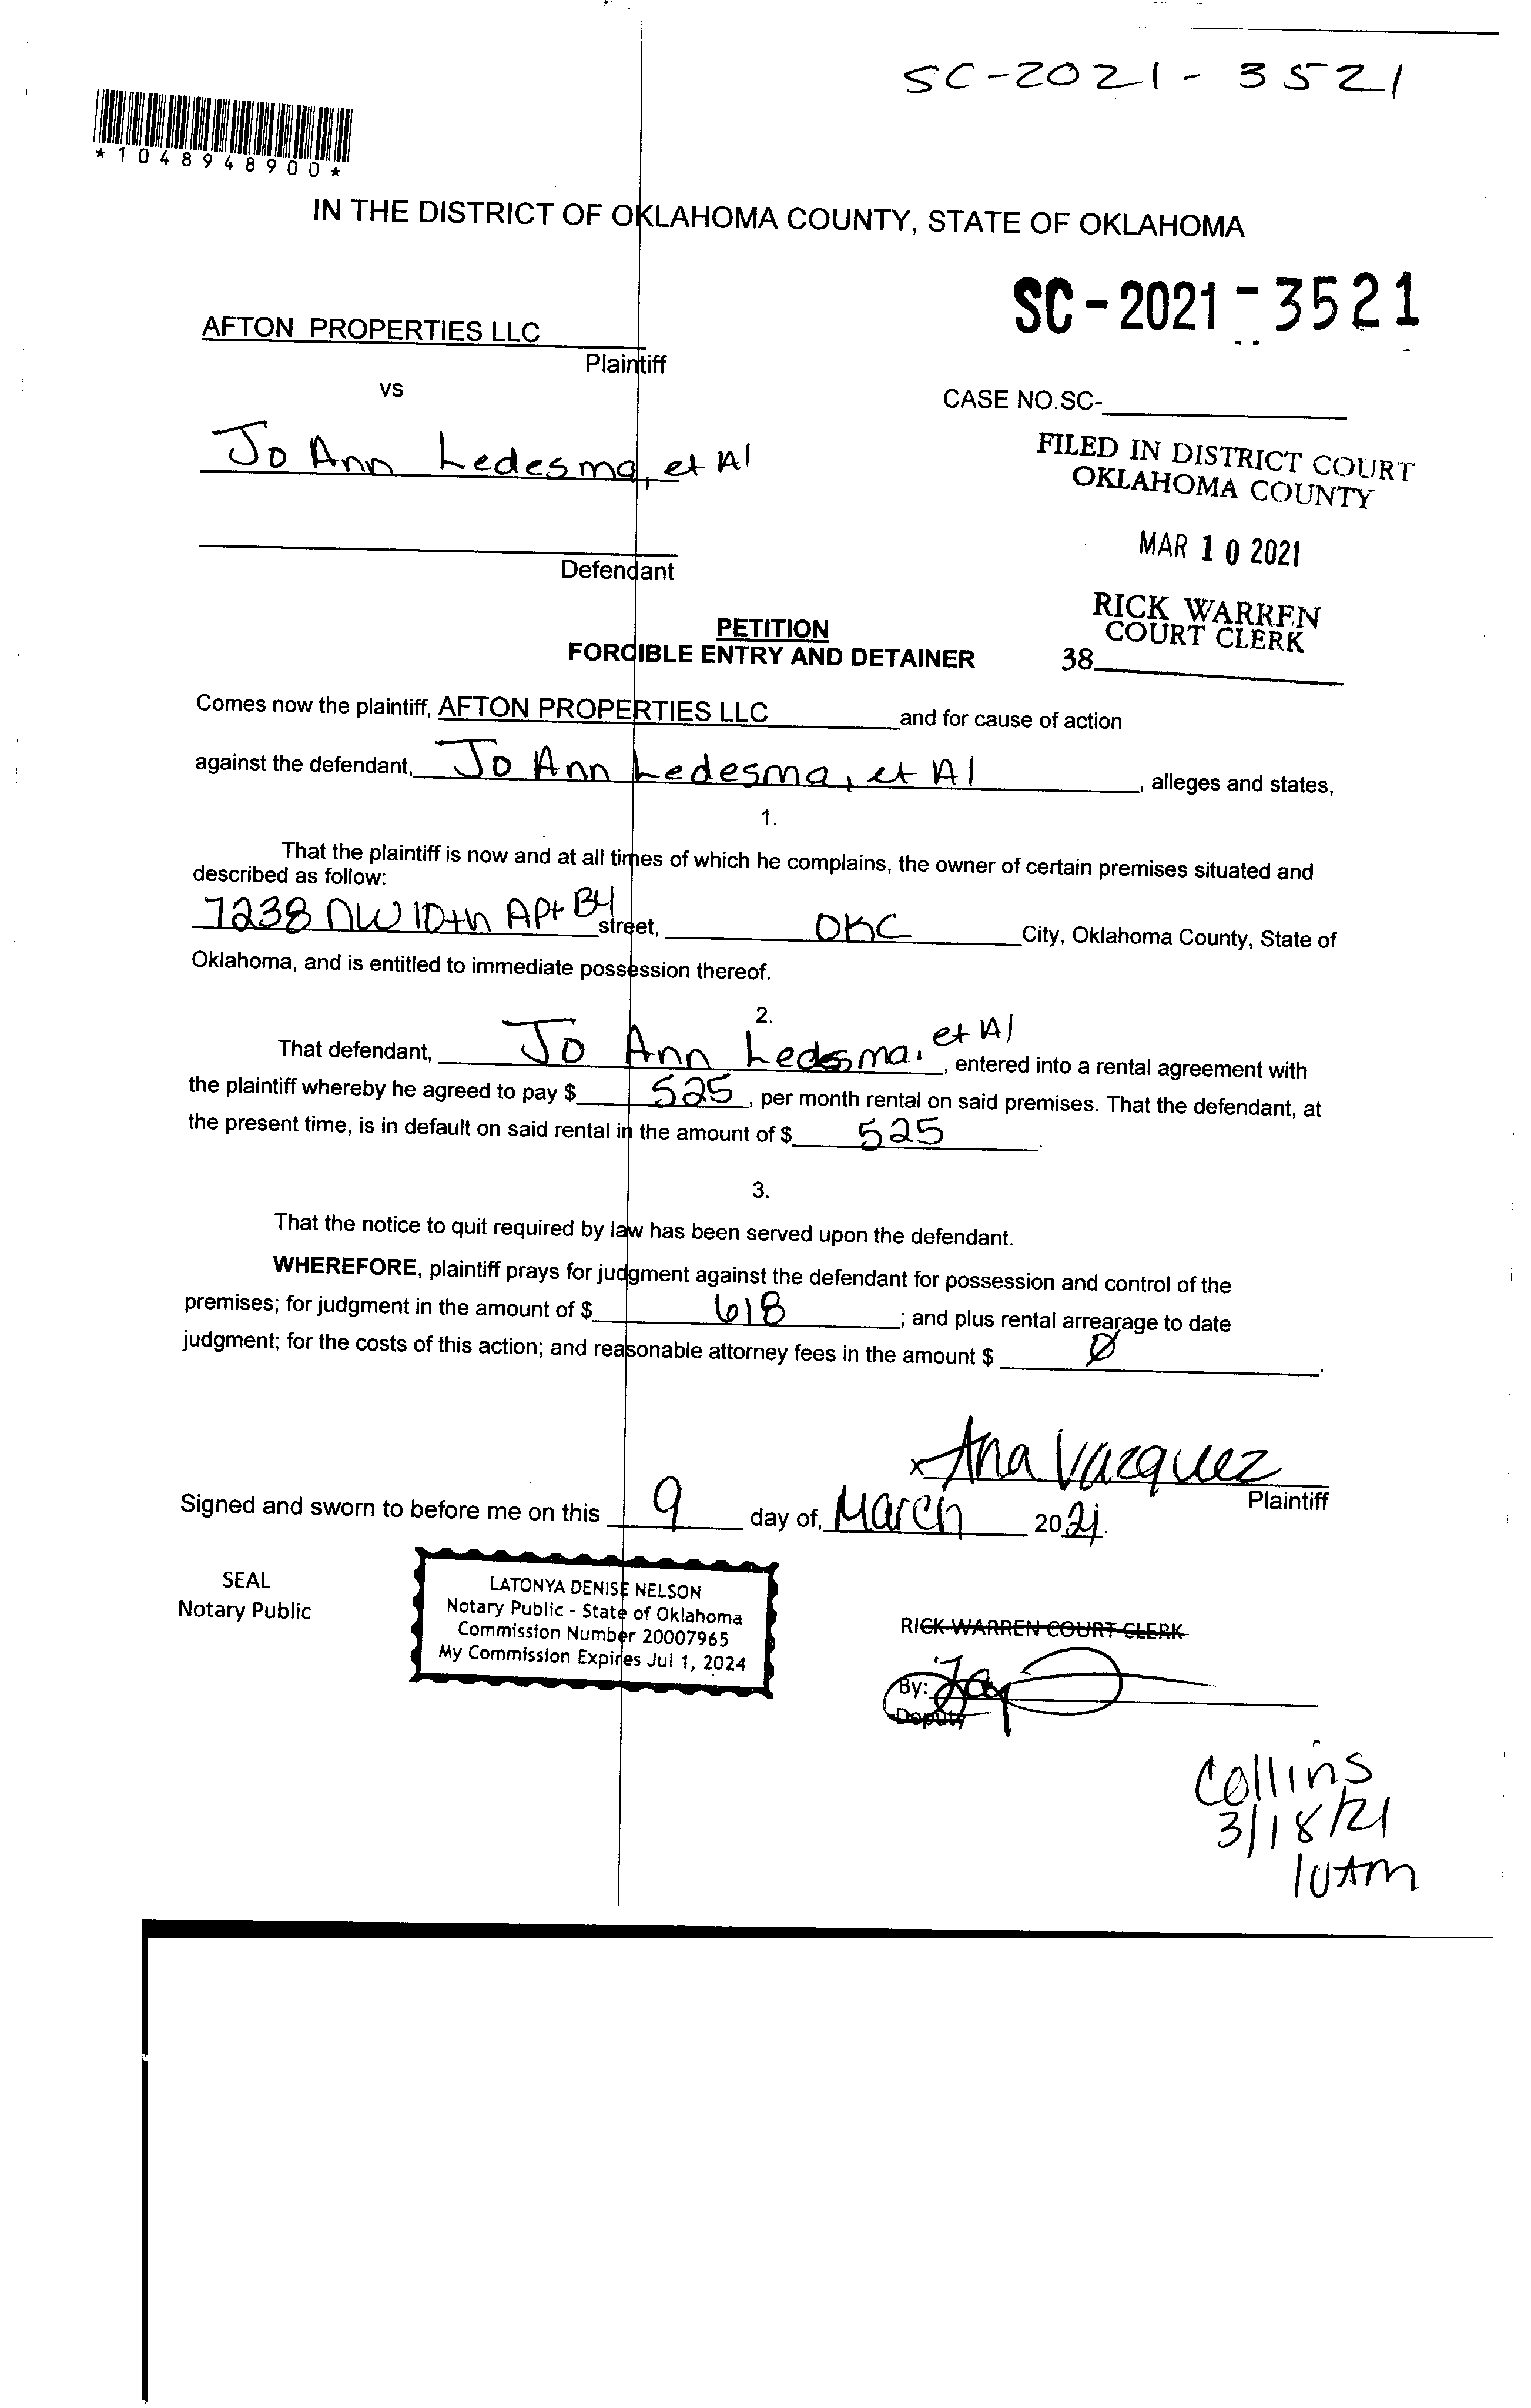 SC-2021-3521
*1048948900*
IN THE DISTRICT OF OKLAHOMA COUNTY, STATE OF OKLAHOMA
SC-2021-3521
AFTON PROPERTIES LLC
Plaintiff
vs
CASE NO.SC-
Jo Ann Ledesma, et Al
FILED IN DISTRICT COURT
OKLAHOMA COUNTY
MAR 10 2021
Defendant
RICK WARREN
COURT CLERK
38
PETITION
FORCIBLE ENTRY AND DETAINER
Comes now the plaintiff, AFTON PROPERTIES LLC and for cause of action
against the defendant, Jo Ann Ledesma, et Al, alleges and states,
1.
That the plaintiff is now and at all times of which he complains, the owner of certain premises situated and
described as follow:
7238 NW 10th Apt B4 street, OKC City, Oklahoma County, State of
Oklahoma, and is entitled to immediate possession thereof.
2.
That defendant, Jo Ann Ledesma, et Al, entered into a rental agreement with
the plaintiff whereby he agreed to pay $ 525, per month rental on said premises. That the defendant, at
the present time, is in default on said rental in the amount of $ 525.
3.
That the notice to quit required by law has been served upon the defendant.
WHEREFORE, plaintiff prays for judgment against the defendant for possession and control of the
premises; for judgment in the amount of $ 618; and plus rental arrearage to date
judgment; for the costs of this action; and reasonable attorney fees in the amount $ Ø.
x Ana Vazquez
Plaintiff
Signed and sworn to before me on this 9 day of, March 2021.
SEAL
Notary Public
LATONYA DENISE NELSON
Notary Public - State of Oklahoma
Commission Number 20007965
My Commission Expires Jul 1, 2024
RICK WARREN COURT CLERK
By:
Deputy
Collins
3/18/21
10AM